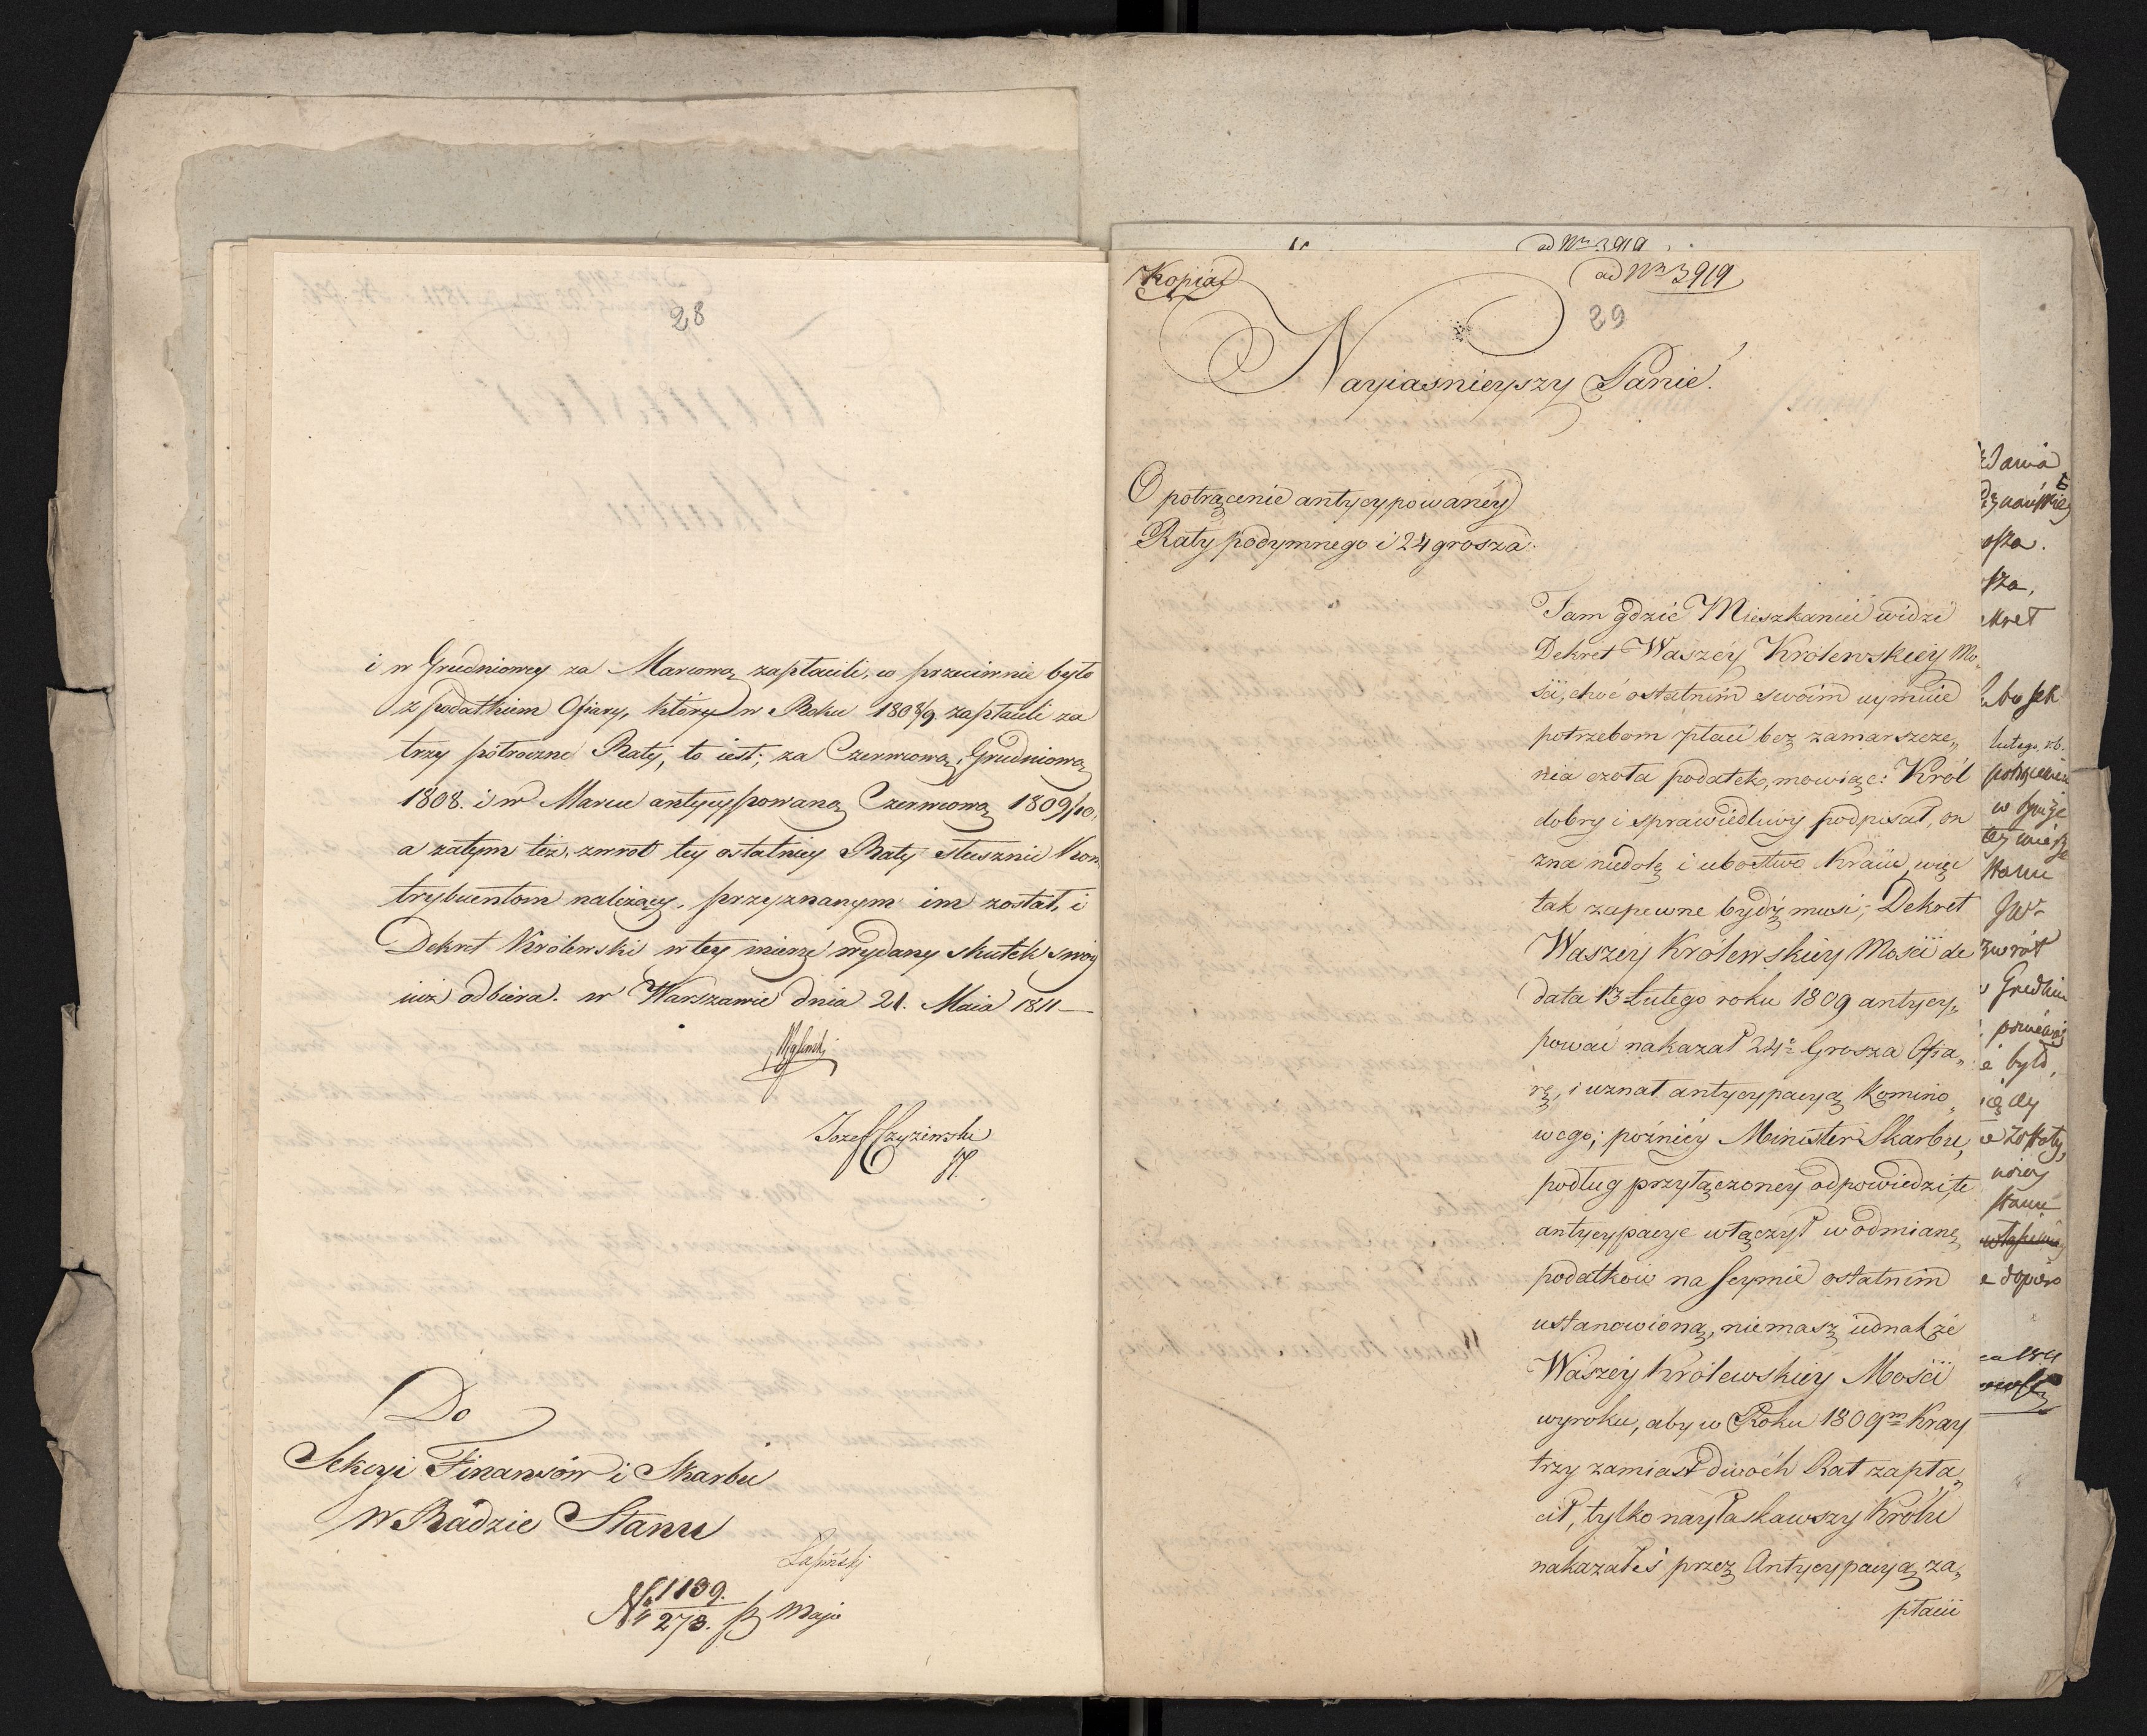 28
i w Grudniowey za Marcową zapłacili, co przeciwnie było
z podatkiem Ofiary, który w Roku 1808/9 zapłacili za
trzy półroczne Raty, to iest; za Czerwcową, Grudniową
1808. i w Marcu antycypowaną Czerwcową 1809/10,
a zatym też zwrot tey ostatniey Raty słusznie Kon
trybuentom należący, przyznanym im został, i
Dekret Królewski w tey mierze wydany skutek swóy
iuż odbiera. w Warszawie dnia 21. Maia 1811 —
Jozef Czyżewski
Do
Sekcyi Finansów i Skarbu
w Radzie Stanu
Łapiński
N. 1139.
273. Maja
ad Nrm 3919
Kopia
ad Nrm 3919
29
Nayiasnieyszy Panie!
O potrącenie antycypowaney
Raty podymnego i 24 grosza.
Tam gdzie Mieszkaniec widzi
Dekret Waszéy Królewskiey Mo„
ści, choć ostatnim swoim uymuie
potrzebom płaci bez zamarszcze„
nia czoła podatek, mowiąc: Król
dobry i sprawiedliwy podpisał, on
zna niedolę i ubostwo Kraiu, więc
tak zapewne bydź musi; Dekret
Waszéy Królewskiéy Mości de
data 13 Lutego roku 1809 antycy„
pować nakazał 24o Grosza Ofia„
rę, i uznał antycypacyą komino„
wego; poźniéy Minister Skarbu,
podług przyłączoney odpowiedzi, te
antycypacye włączył w odmianę
podatkow na Seymie ostatnim
ustanowioną, niemasz iednakże
Waszéy Królewskiéy Mości
wyroku, aby w Roku 1809m Kray
trzy zamiast dwóch Rat zapła„
cił, tylko nayłaskawszy Królu
nakazałeś przez Antycypacyą za„
płacić
kret
lutego
w
stanu
zwrót
było,
stanu
dopiéro